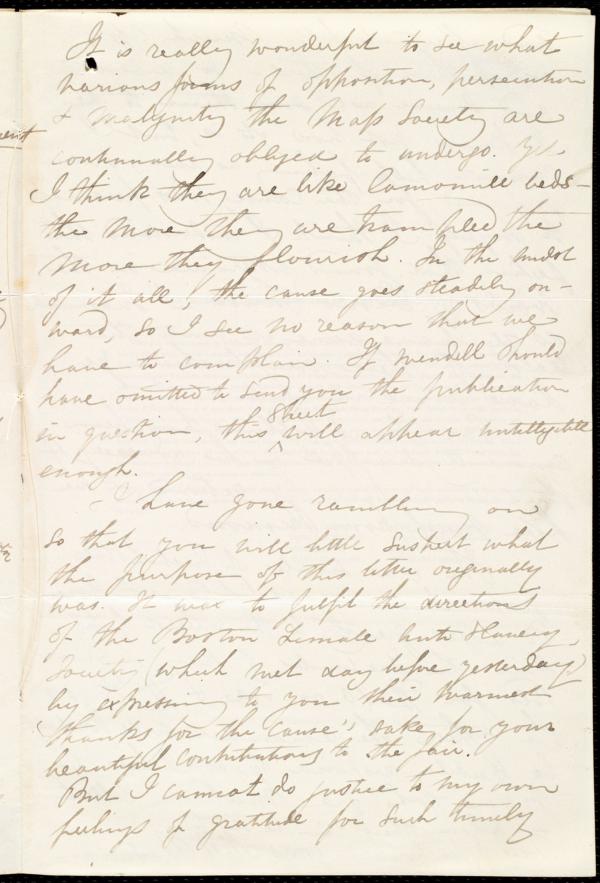 It is really wonderful to see what
various forms of opposition, persecution
& malignity the Mass Society are
continually obliged to undergo. Yet
I think they are like Camomile beds -
the more they are trampled the
more they flourish. In the midst
of it all, the cause goes steadily on-
ward, so I see no reason that we
have to complain. If Wendell should
have omitted to send you the publication
in question, this sheet will appear
enough.
- I have gone rambling on
so that you will little suspect what
the purpose of this letter originally
was. It was to fulfil the directions
of the Boston Female Anti Slavery
Society (which met day before yesterday)
by expressing to you their warmest
thanks for the cause's sake, for your
beautiful contributions to the fair.
But I cannot do justice to my own
feelings of gratitude for such timely